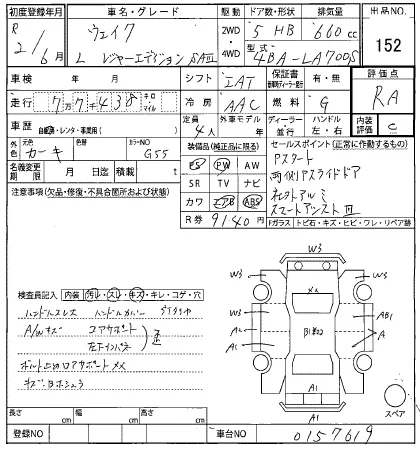 初度登録年月
R
2/6月
車名・グレード
ウェイク
L レジャーエディション SAⅢ
駆動
2WD
4WD
ドア数・形状
5 HB
排気量
660cc
型式
4BA-LA700S
出品NO.
152
車検
年 月
シフト
IAT
保証書
車両ディーラー発行
有・無
評価点
RA
走行
7万7千438
キロ
マイル
冷房
AAC
燃料
G
車歴
自家用・レンタ・事業用( )
定員
4人
外車モデル
年
ディーラー
並行
ハンドル
左・右
内装
評価
C
外色
カーキ
色替
カラーNO
G55
装備品(純正品に限る)
PS PW AW
SR TV ナビ
カワ エアB ABS
R券 9140円
セールスポイント(正常に作動するもの)
Pスタート
両側Pスライドドア
社外アルミ
スマートアシストⅢ
名義変更
期限
月 日迄
積載
t
Fガラス トビ石・キズ・ヒビ・ワレ・リペア跡
注意事項(欠品・修復・不具合箇所および状態)
検査員記入
内装 汚レ・スレ・キズ・キレ・コゲ・穴
ハンドルスレ ハンドルカバー
A/Wキズ コアサポート
左Fインパネ
歪
ボルト止めロアサポートメメ
キズ・Bホシュウ
W3
W3
W3
W3
メハ
A
A1
AB1
A
A1
A1
スペア
長さ
cm
幅
cm
高さ
cm
登録NO
車台NO
0157619